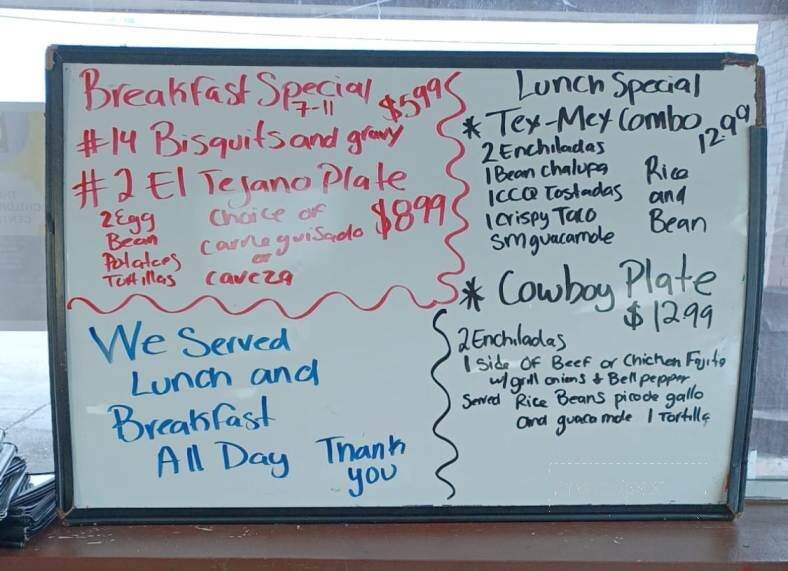 Breakfast Special
7-11
$5.99
#14 Bisquits and gravy
#2 El Tejano Plate
$8.99
2 Egg
Bean
Potatoes
Tortillas
Choice of
carne guisado
or
caveza
We Served
Lunch and
Breakfast
All Day
Thank
you
Lunch Special
* Tex-Mex Combo 12.99
2 Enchiladas
1 Bean chalupa
1 CCQ Tostadas
1 Crispy Taco
sm guacamole
Rice
and
Bean
* Cowboy Plate
$12.99
2 Enchiladas
1 Side OF Beef or Chicken Fajita
w/ grill onions & Bell pepper
Served Rice Beans pico de gallo
and guacamole 1 Tortilla